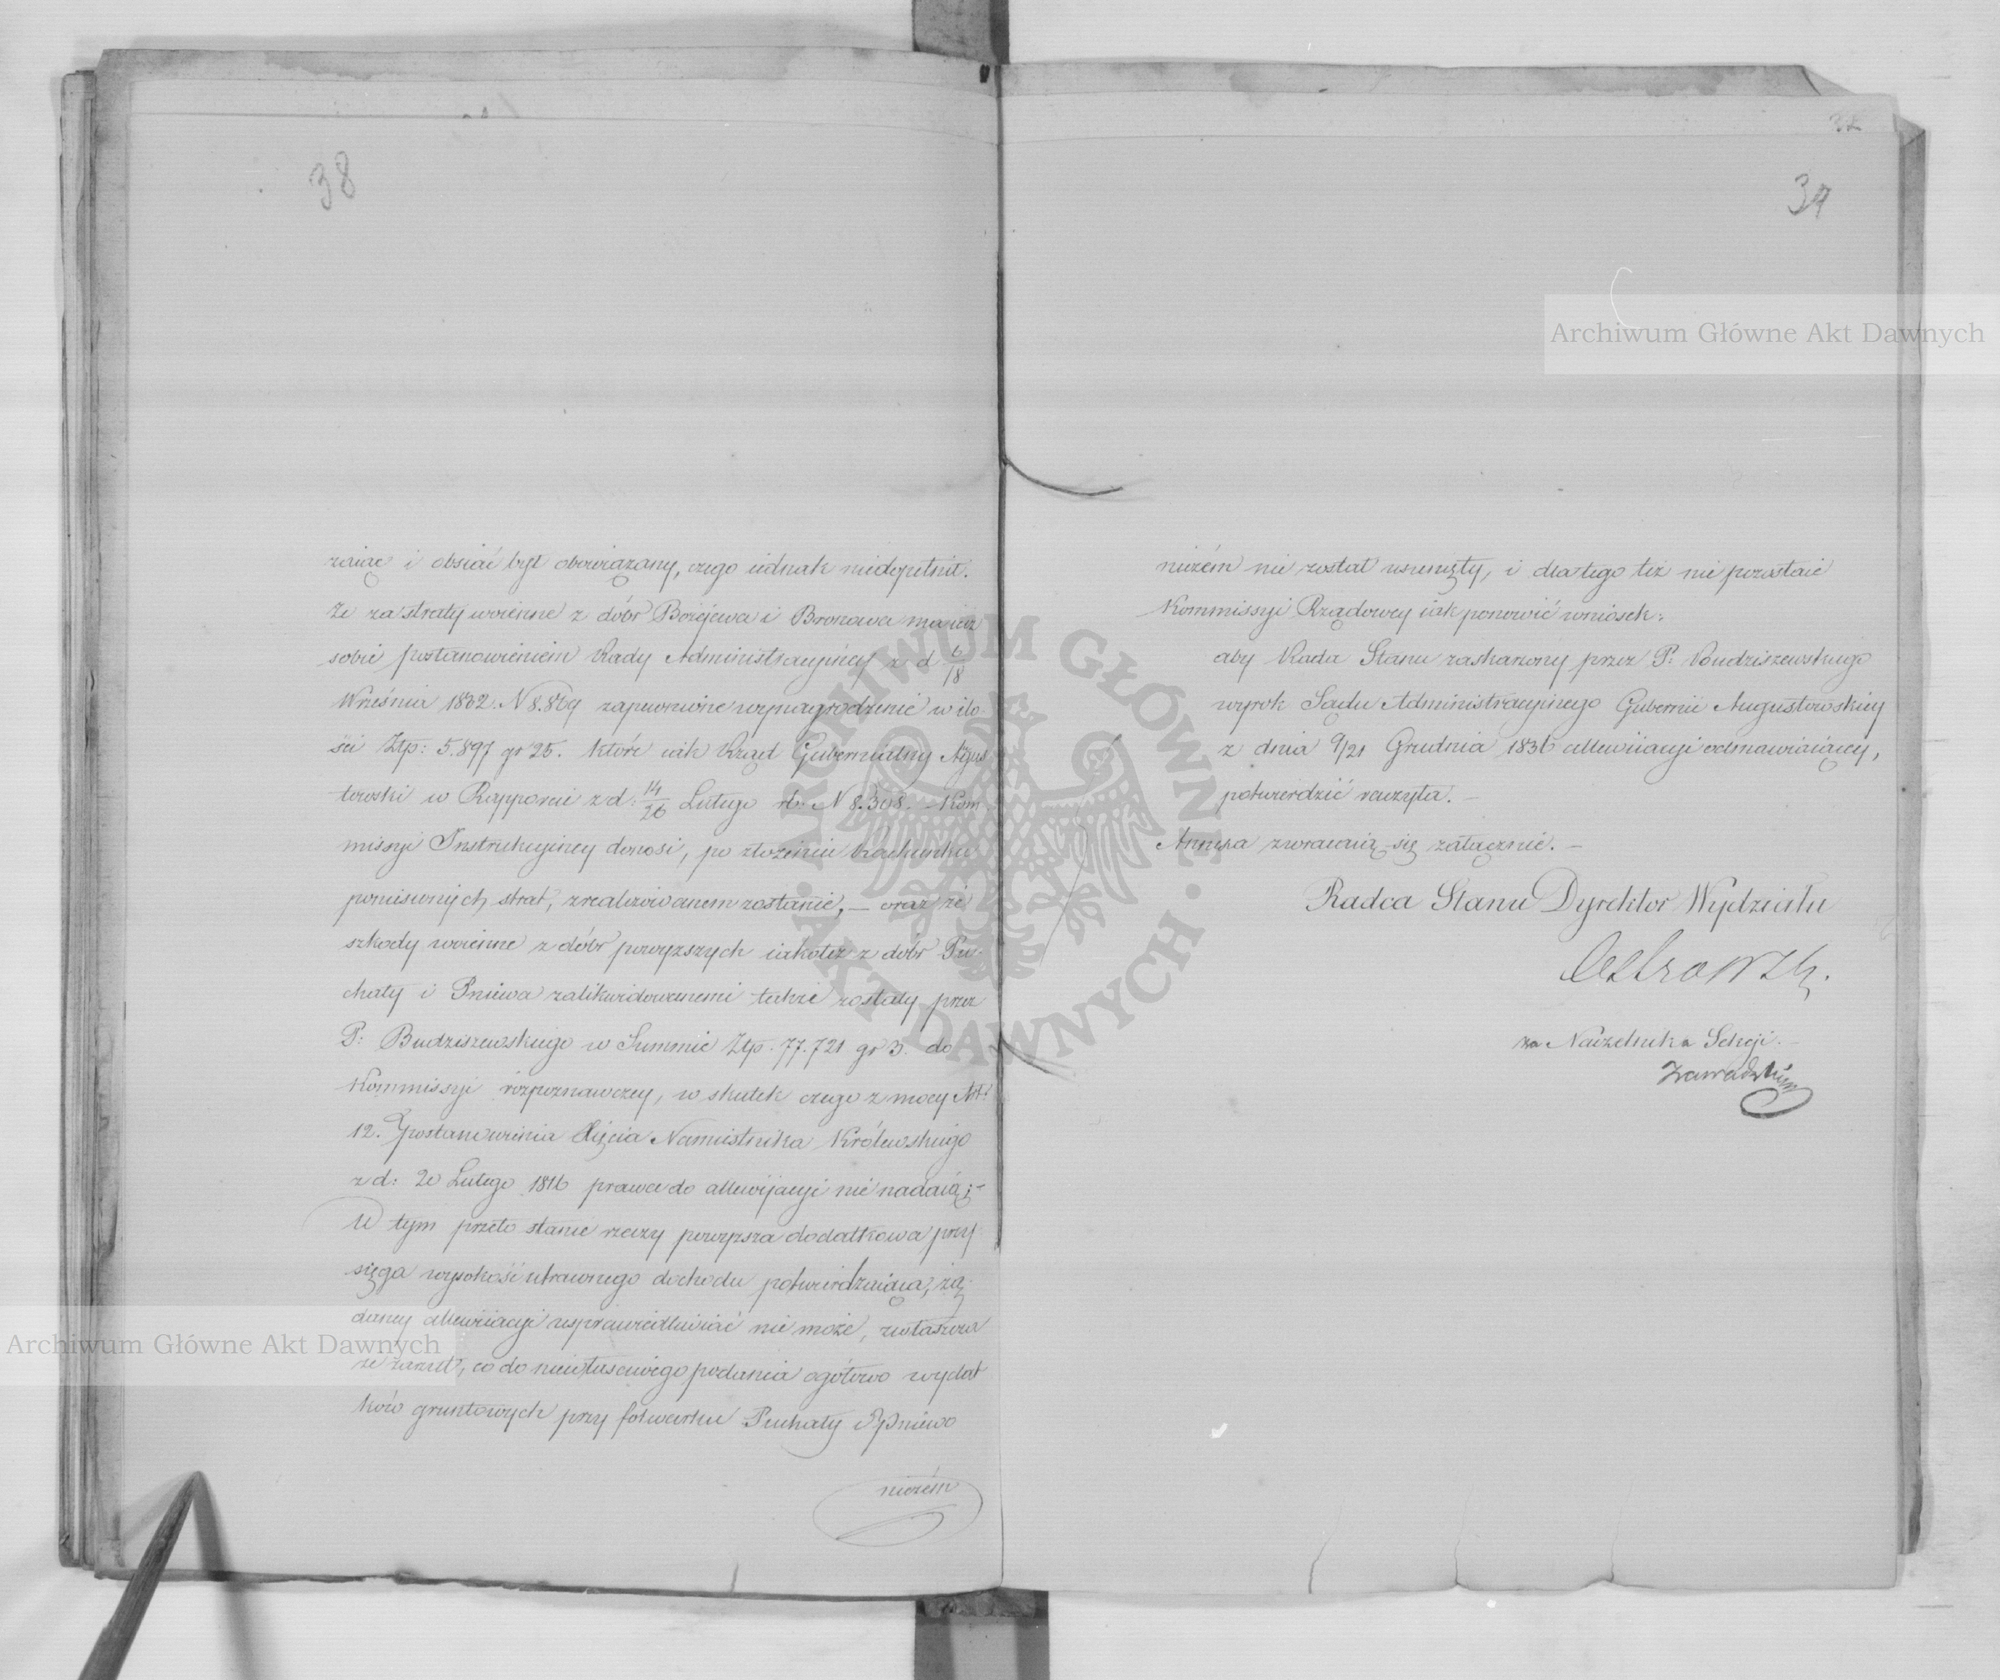 38
raiąc i obsiać był obowiązany, czego iednak niedopełnił.
Że za straty woienne z dóbr Bożejewa i Bronowa ma iuż
sobie postanowieniem Rady Administracyjney z d 6/18
Września 1832 N 8.869 zapewnione wynagrodzenie w ilo-
ści Złp: 5.897 gr 25. które iak Rząd Gubernialny Augus
towski w Rapporcie z d: 14/26 Lutego rb. N 8.308. – Kom
missyi Instrukcyjney donosi, po złożeniu Rachunku
poniesionych strat, zrealizowanem zostanie, – oraz że
szkody woienne z dóbr powyższych iakoteż z dóbr Pu-
chały i Pniewa zalikwidowanemi także zostały przez
P: Budziszewskiego w Summie Złp. 77.721 gr 3. do
Kommissyi rozpoznawczey, w skutek czego z mocy Art:
12. Postanowienia Xięcia Namiestnika Królewskiego
z d: 20 Lutego 1816 prawa do allewijacyi nie nadaią;–
W tym przeto stanie rzeczy powyższa dodatkowa przy
sięga wysokość utraconego dochodu potwierdzaiąca, żą-
daney allewiiacyi usprawiedliwiać nie może, zwłaszcza
że zarzut, co do niewłaściwego podania ogółowo wydat
ków gruntowych przy folwarku Puchały i Pniewo
niczém
32
39
niczém nie został usunięty, i dla tego też nie pozostaie
Kommissyi Rządowey iak ponowić wniosek:
aby Rada Stanu zaskarżony przez P: Budziszewskiego
wyrok Sądu Administracyjnego Gubernii Augustowskiey
z dnia 9/21 Grudnia 1836 allewiiacyi odmawiaiący,
potwierdzić raczyła. –
Annexa zwracaią się załącznie. –
Radca Stanu Dyrektor Wydziału
za Naczelnika Sekcji. –
Zawadzki
Archiwum Główne Akt Dawnych
Archiwum Główne Akt Dawnych
ARCHIWUM GŁÓWNE · AKT DAWNYCH ·